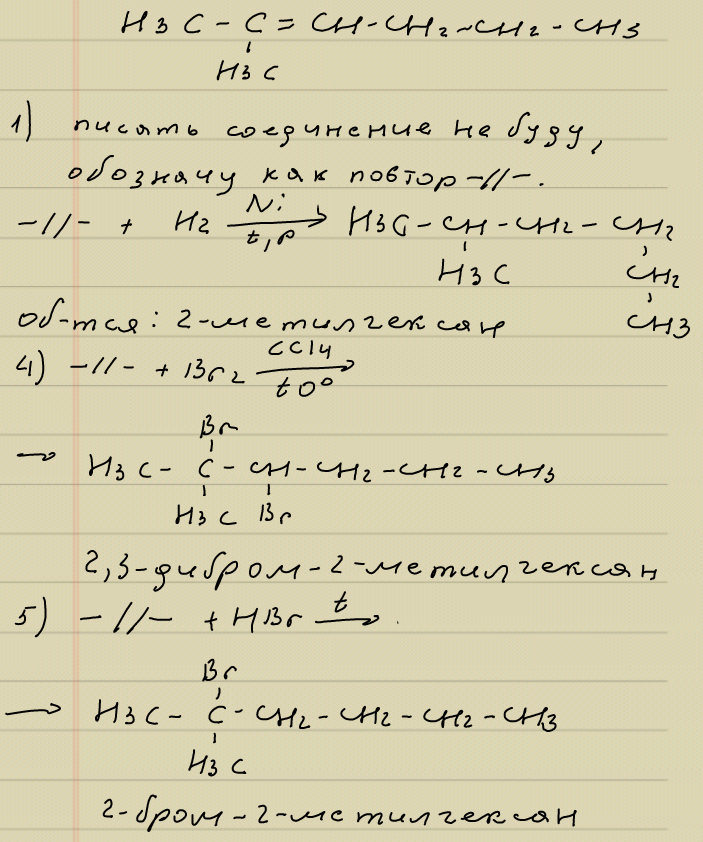 H3C - C = CH-CH2-CH2-CH3
H3C
1) писать соединение не буду,
обозначу как повтор -//-.
-//- + H2 Ni t,p → H3C - CH - CH2 - CH2
H3C CH2
об-тся: 2-метилгексан CH3
4) -//- + Br2 CCl4 t0° →
Br
→ H3C - C - CH - CH2 - CH2 - CH3
H3C Br
2,3-дибром-2-метилгексан
5) -//- + HBr t → .
Br
→ H3C - C - CH2 - CH2 - CH2 - CH3
H3C
2-бром-2-метилгексан